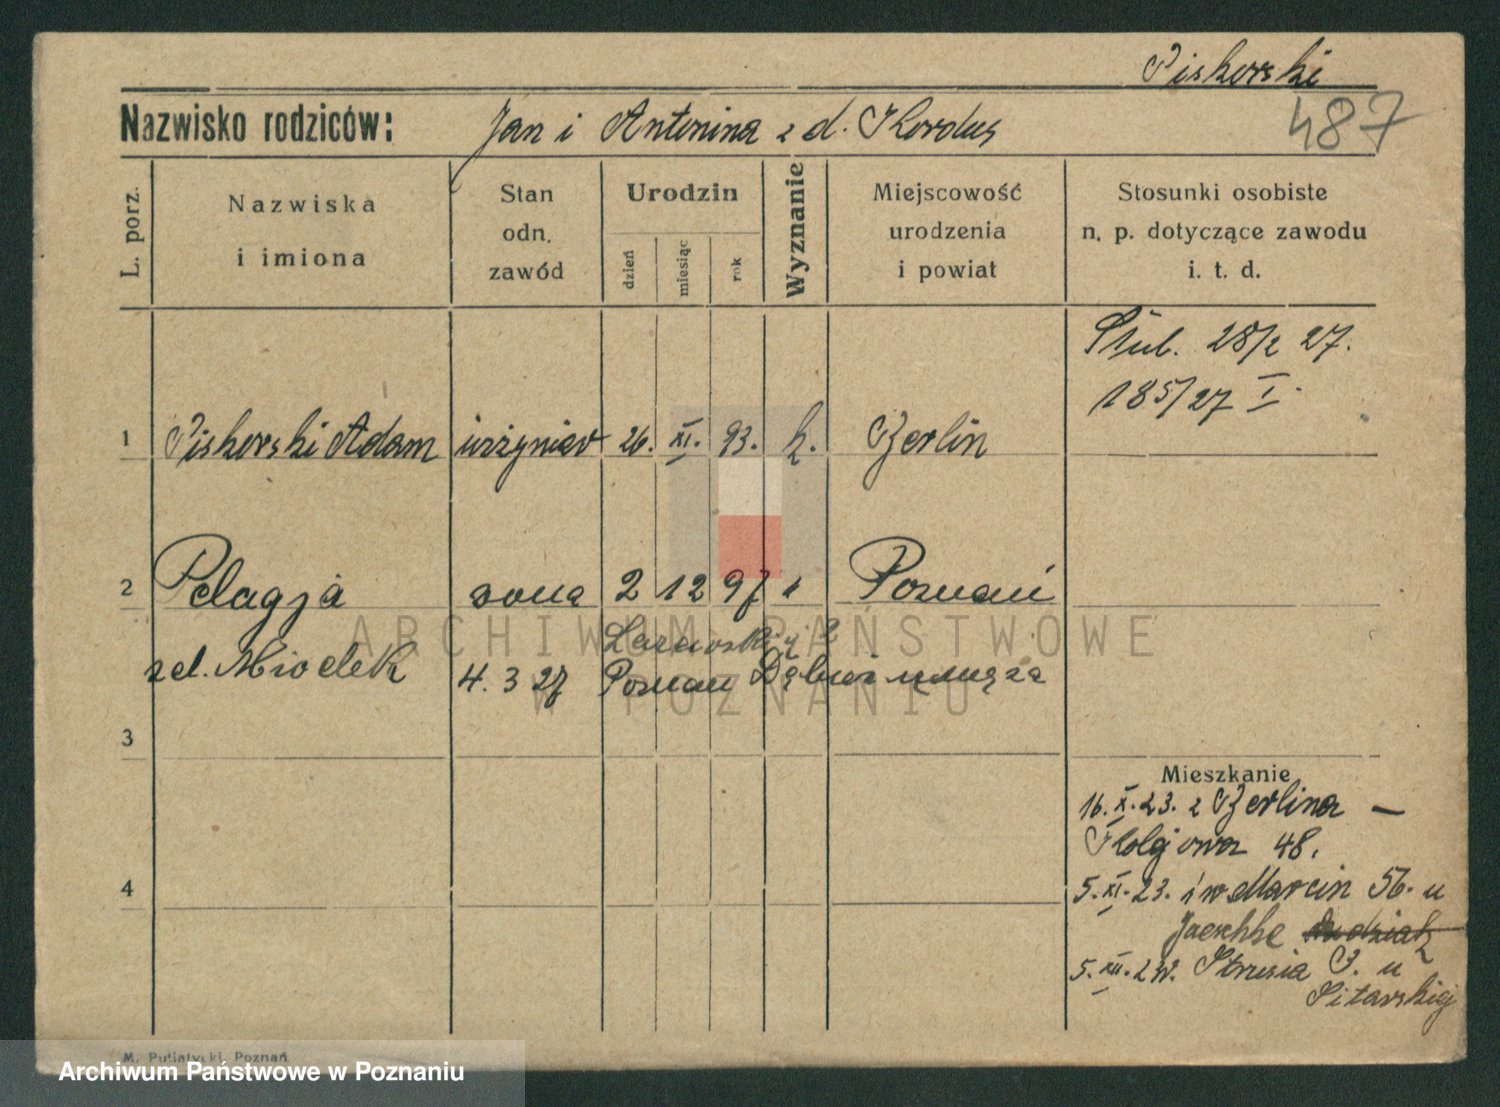 Piskorski
487
Nazwisko rodziców: Jan i Antonina z d. Kordus
L. porz.
Nazwiska i imiona
Stan odn. zawód
Urodzin
dzień
miesiąc
rok
Wyznanie
Miejscowość urodzenia i powiat
Stosunki osobiste n. p. dotyczące zawodu i. t. d.
Ślub. 28/2 27.
185/27 I.
1 Piskorski Adam inżynier 26. XI. 93. k. Berlin
2 Pelagja żona 2 12 97 " Poznań
zd. Miodek 4. 3 27 Poznań
3
4
Mieszkanie
16. X. 23. z Berlina —
48.
5. XI. 23. św Marcin 56. u
Jaeschke
5. XII. Strusia u
M. Putiatycki, Poznań
ARCHIWUM PAŃSTWOWE
W POZNANIU
Archiwum Państwowe w Poznaniu